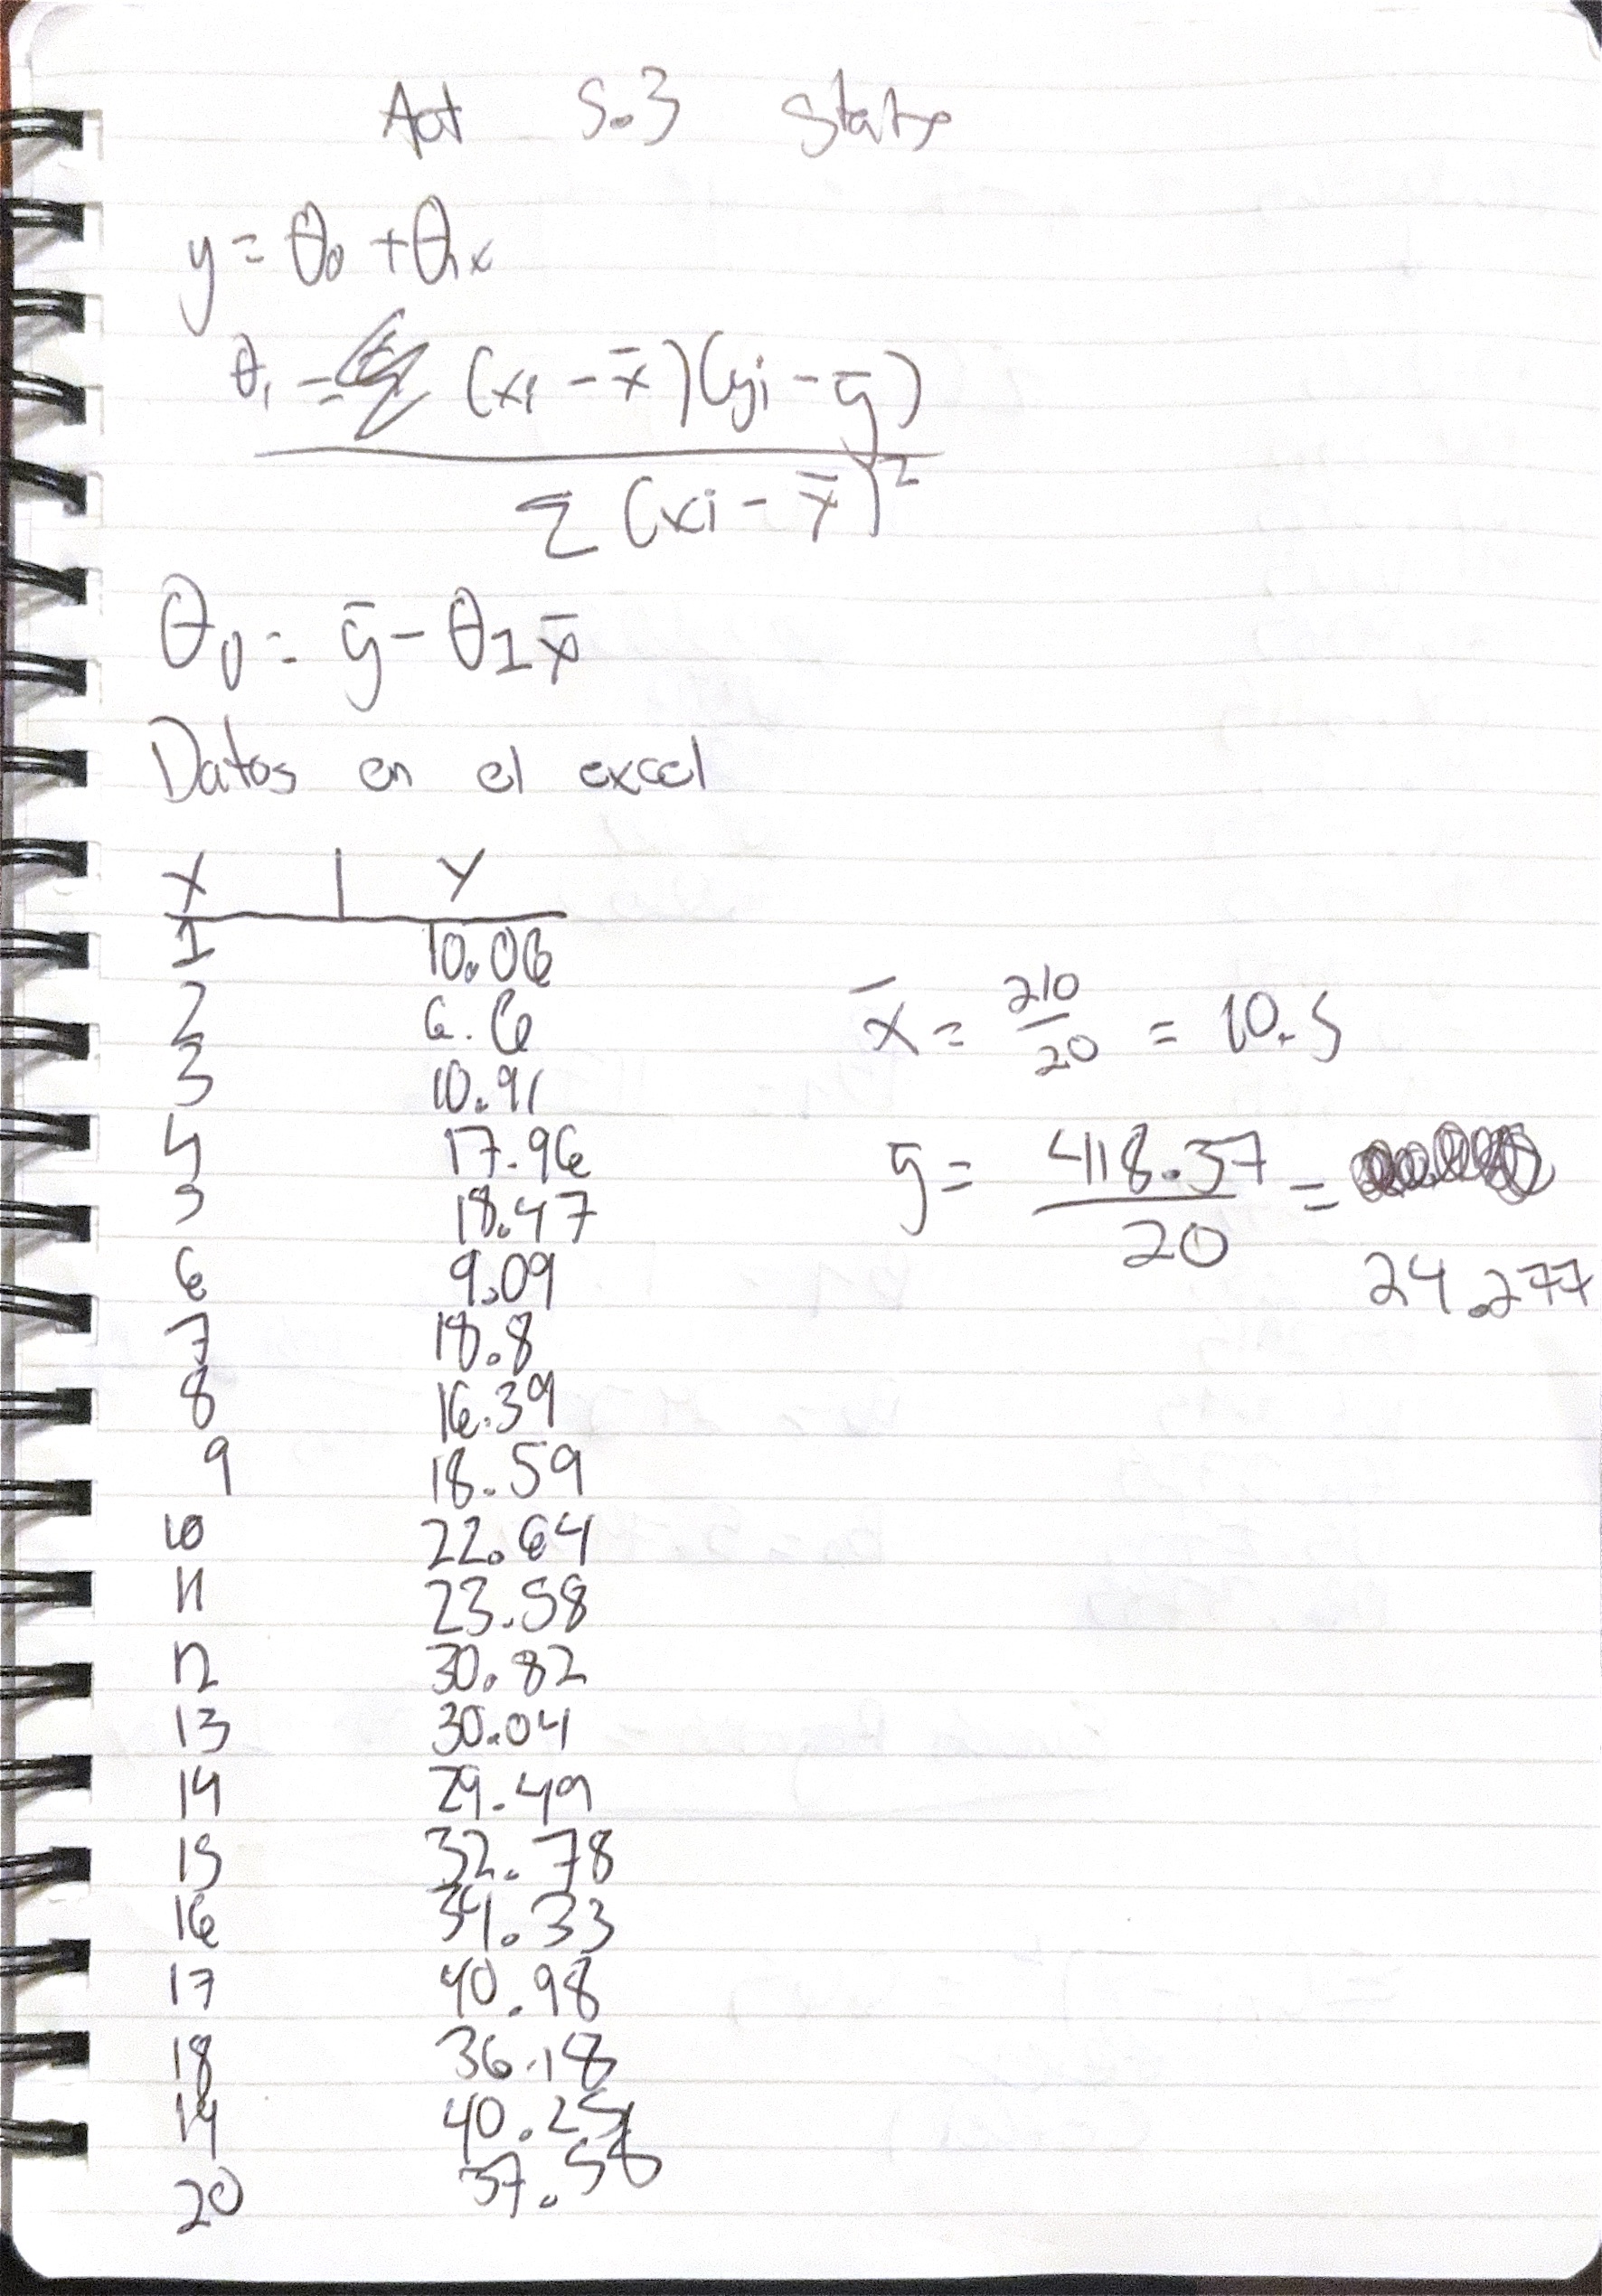 Act 5.3 Stats
y = θ0 + θ1x
θ1 = Σ (xi - x̄)(yi - ȳ)
Σ (xi - x̄)²
θ0 = ȳ - θ1x̄
Datos en el excel
X | Y
1 10.06
2 6.6
3 10.91
4 17.96
5 18.47
6 9.09
7 18.8
8 16.39
9 18.59
10 22.64
11 23.58
12 30.82
13 30.04
14 29.49
15 32.78
16 34.33
17 40.98
18 36.18
19 40.25
20 37.58
x̄ = 210/20 = 10.5
ȳ = 418.37/20 =
24.277